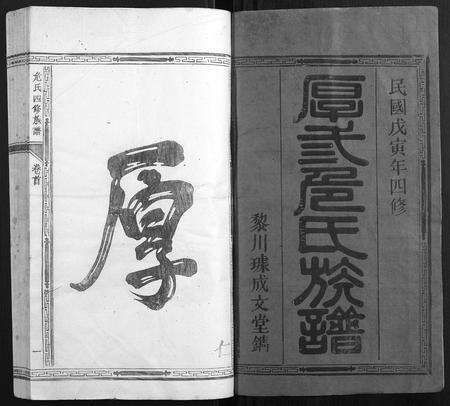 民國戊寅年四修
厚危氏族譜
黎川璩成文堂鐫
厚
危氏四修族譜
卷首
一